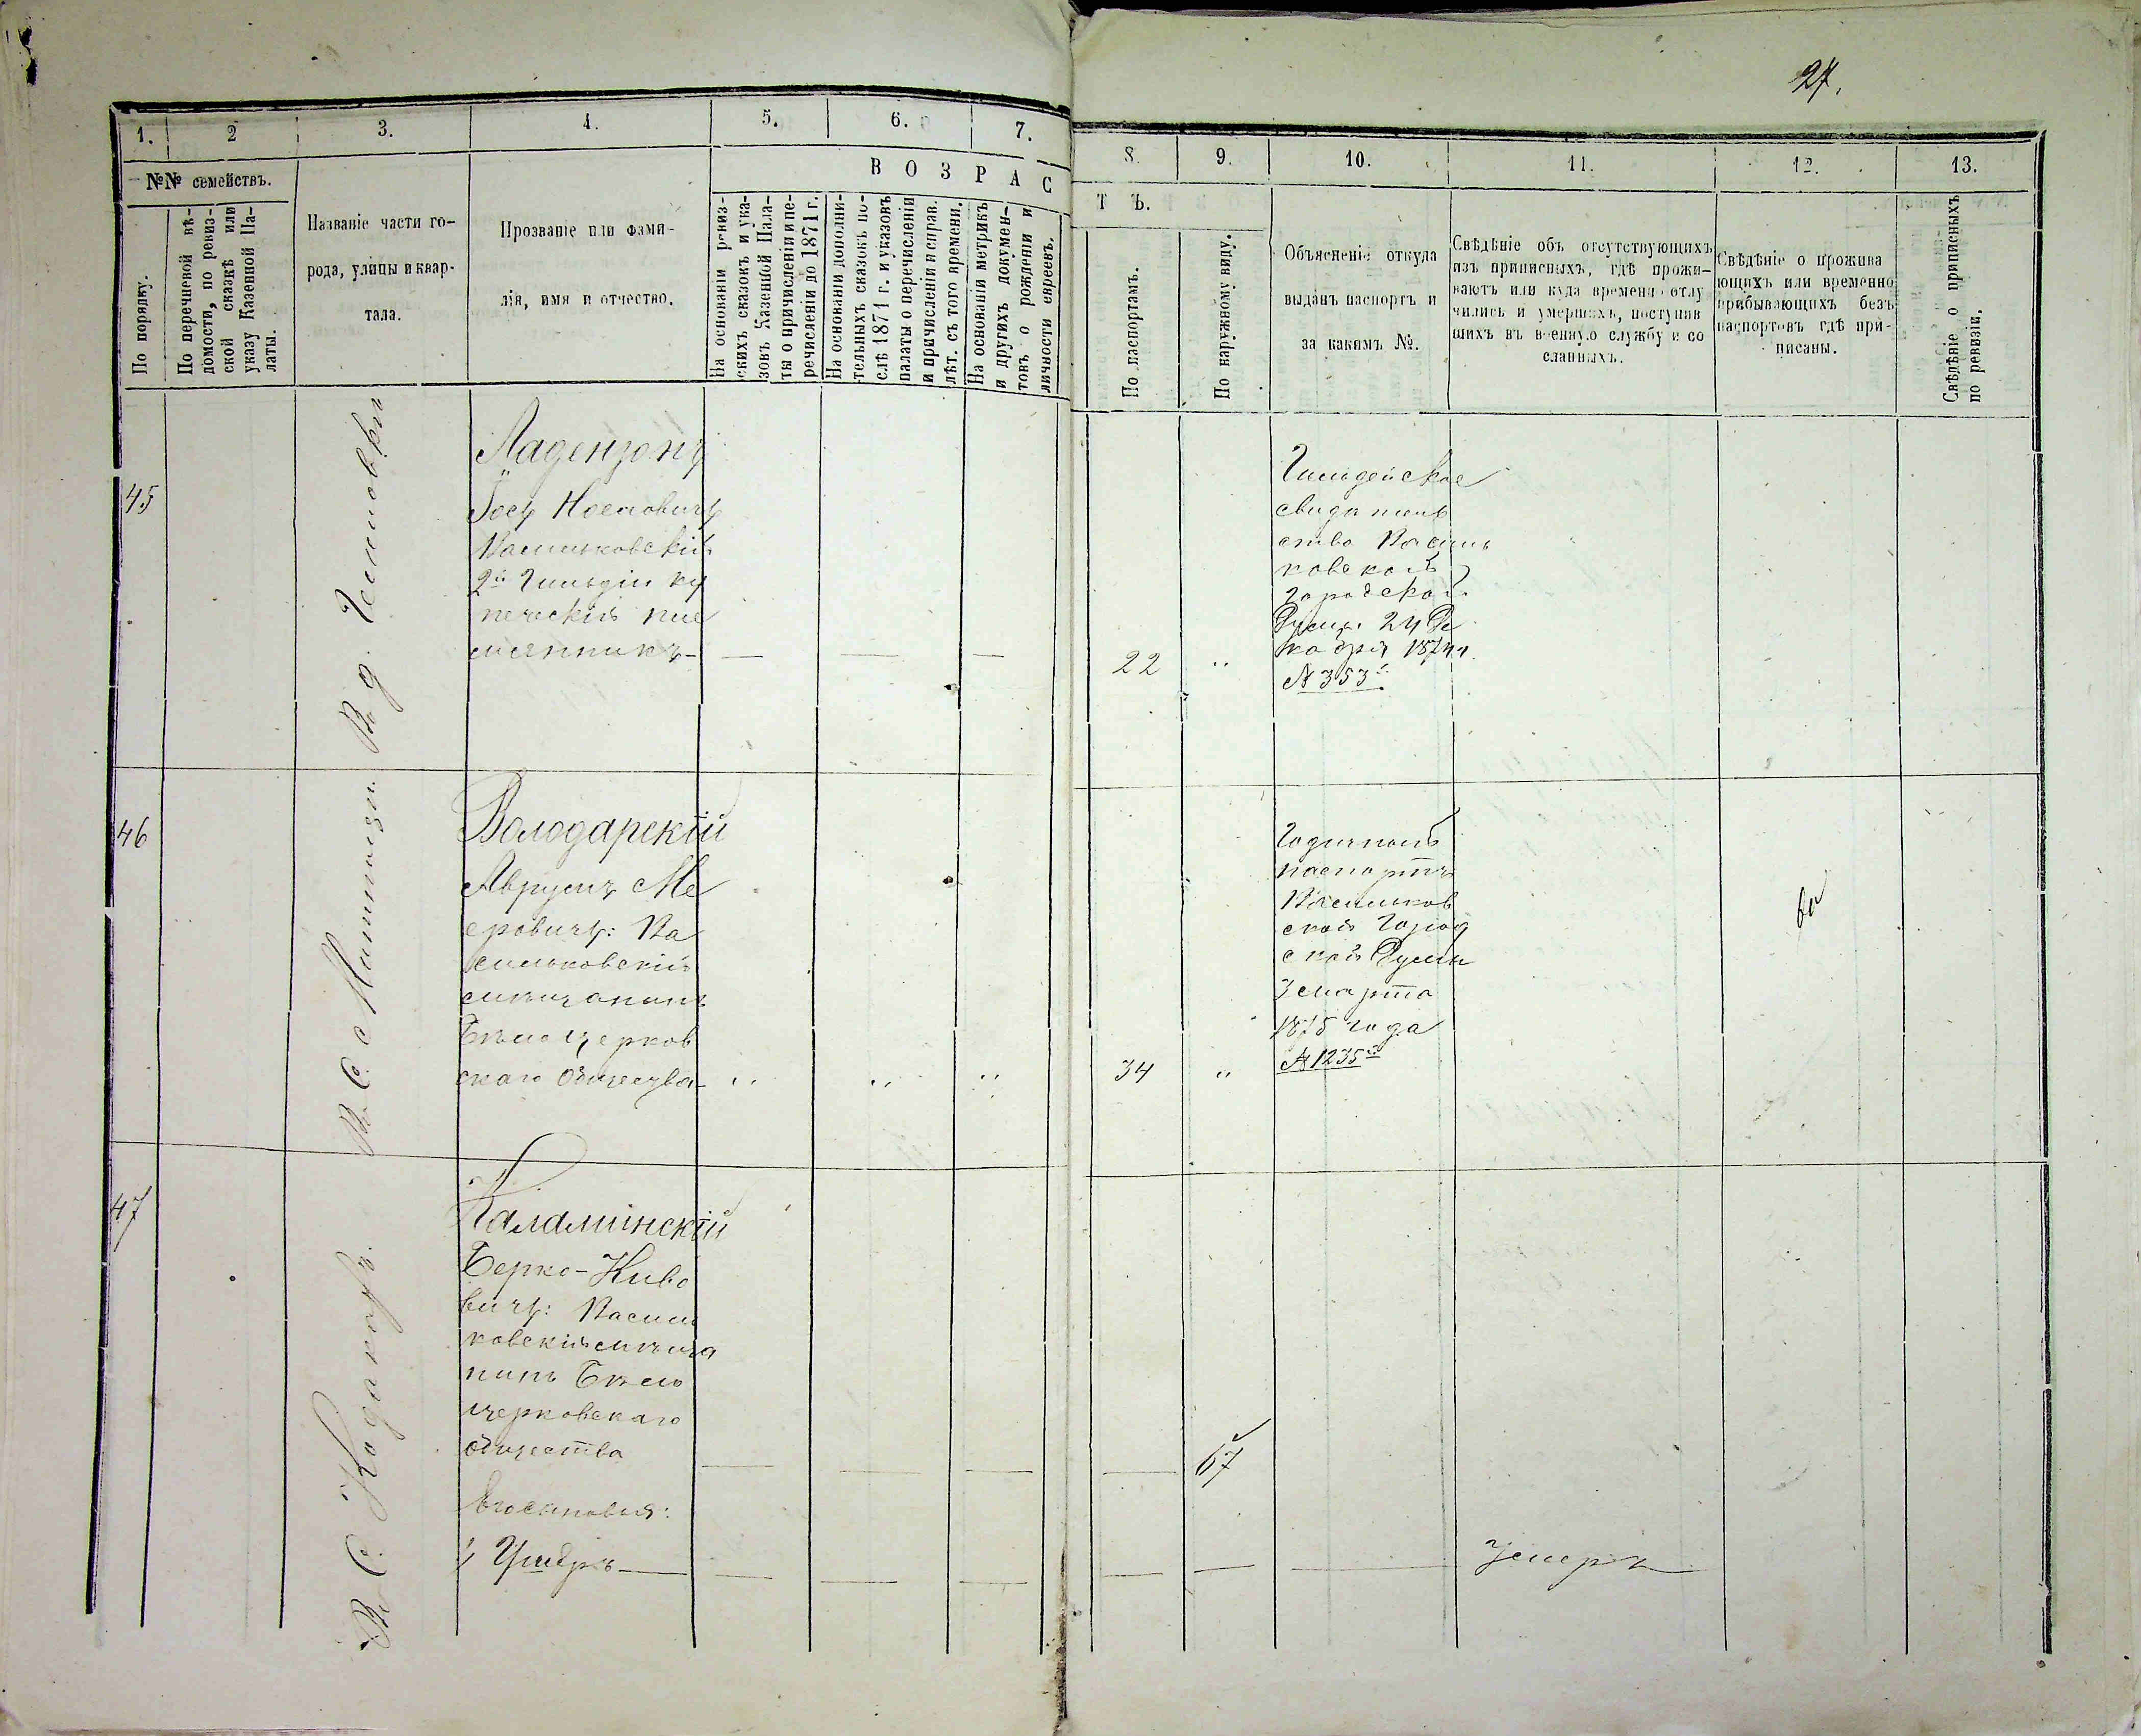 27.
1.
2
3.
4.
5.
6.
7.
8.
9.
10.
11.
12.
13.
№№ семействъ.
По порядку.
По перечневой вѣ-
домости, по ревиз-
ской сказкѣ или
указу Казенной Па-
латы.
Названіе части го-
рода, улицы и квар-
тала.
Прозваніе или фами-
лія, имя и отчество.
ВОЗРАС
На основаніи ревиз-
скихъ сказокъ и ука-
зовъ Казенной Пала-
ты о причисленіи и пе-
речисленіи до 1871 г.
На основаніи дополни-
тельныхъ сказокъ по-
слѣ 1871 г. и указовъ
палаты о перечисленіи
и причисленіи и справ.
лѣт. съ того времени.
На основаніи метрикъ
и другихъ докумен-
товъ о рожденіи и
личности евреевъ.
ТЪ.
По паспортамъ.
По наружному виду.
Объясненіе откуда
выданъ паспортъ и
за какимъ №.
Свѣдѣніе объ отсутствующихъ
изъ приписныхъ, гдѣ прожи-
ваютъ или куда времени отлу
чились и умершихъ, поступив
шихъ въ военную службу и со
сланныхъ.
Свѣдѣніе о прожива
ющихъ или временно
прибывающихъ безъ
паспортовъ гдѣ при-
писаны.
Свѣдѣніе о приписныхъ
по ревизіи.
45
Ладензонъ
Іосъ Носановичъ
Васильковскій
2й Гильдіи ку
печескій пле
мянникъ-
22
Гильдейское
свидѣтель
ство Василь
ковской
городской
Думы 24 Де
кабря 1874 г.
№ 353
46
В. С.
Володарскій
Аврумъ Ме
еровичъ: Ва
сильковскій
мѣщанинъ
Бѣлоцерков
скаго Общества-
34
Годичной
паспортъ
Васильков
ской Город
ской Думы
3 марта
1875 года
№ 1235
47
В. С.
Каламинскій
Берко-
вичъ: Василь
ковскій мѣща
нинъ Бѣло
церковскаго
общества
67
Его сыновья:
1,
Умеръ